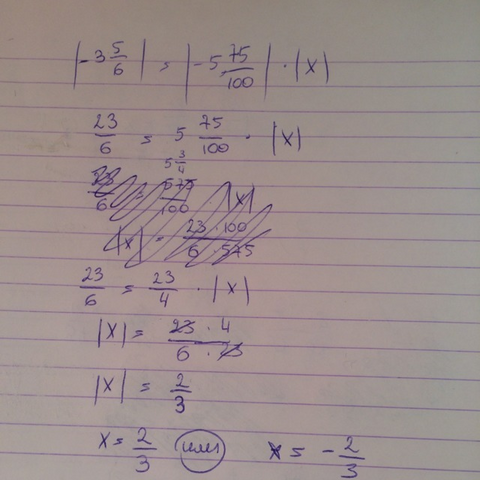 |-3 5/6| = |-5 75/100| · |x|
23/6 = 5 75/100 · |x|
5 3/4
23/6 = 575/100 |x|
|x| = 23 · 100 / 6 · 575
23/6 = 23/4 · |x|
|x| = 23 · 4 / 6 · 23
|x| = 2/3
x = 2/3 или x = -2/3